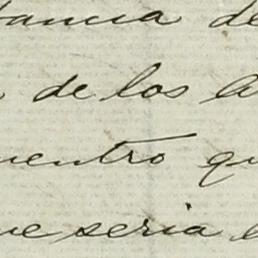 tancia de
de los
uentro qu
ue seria e